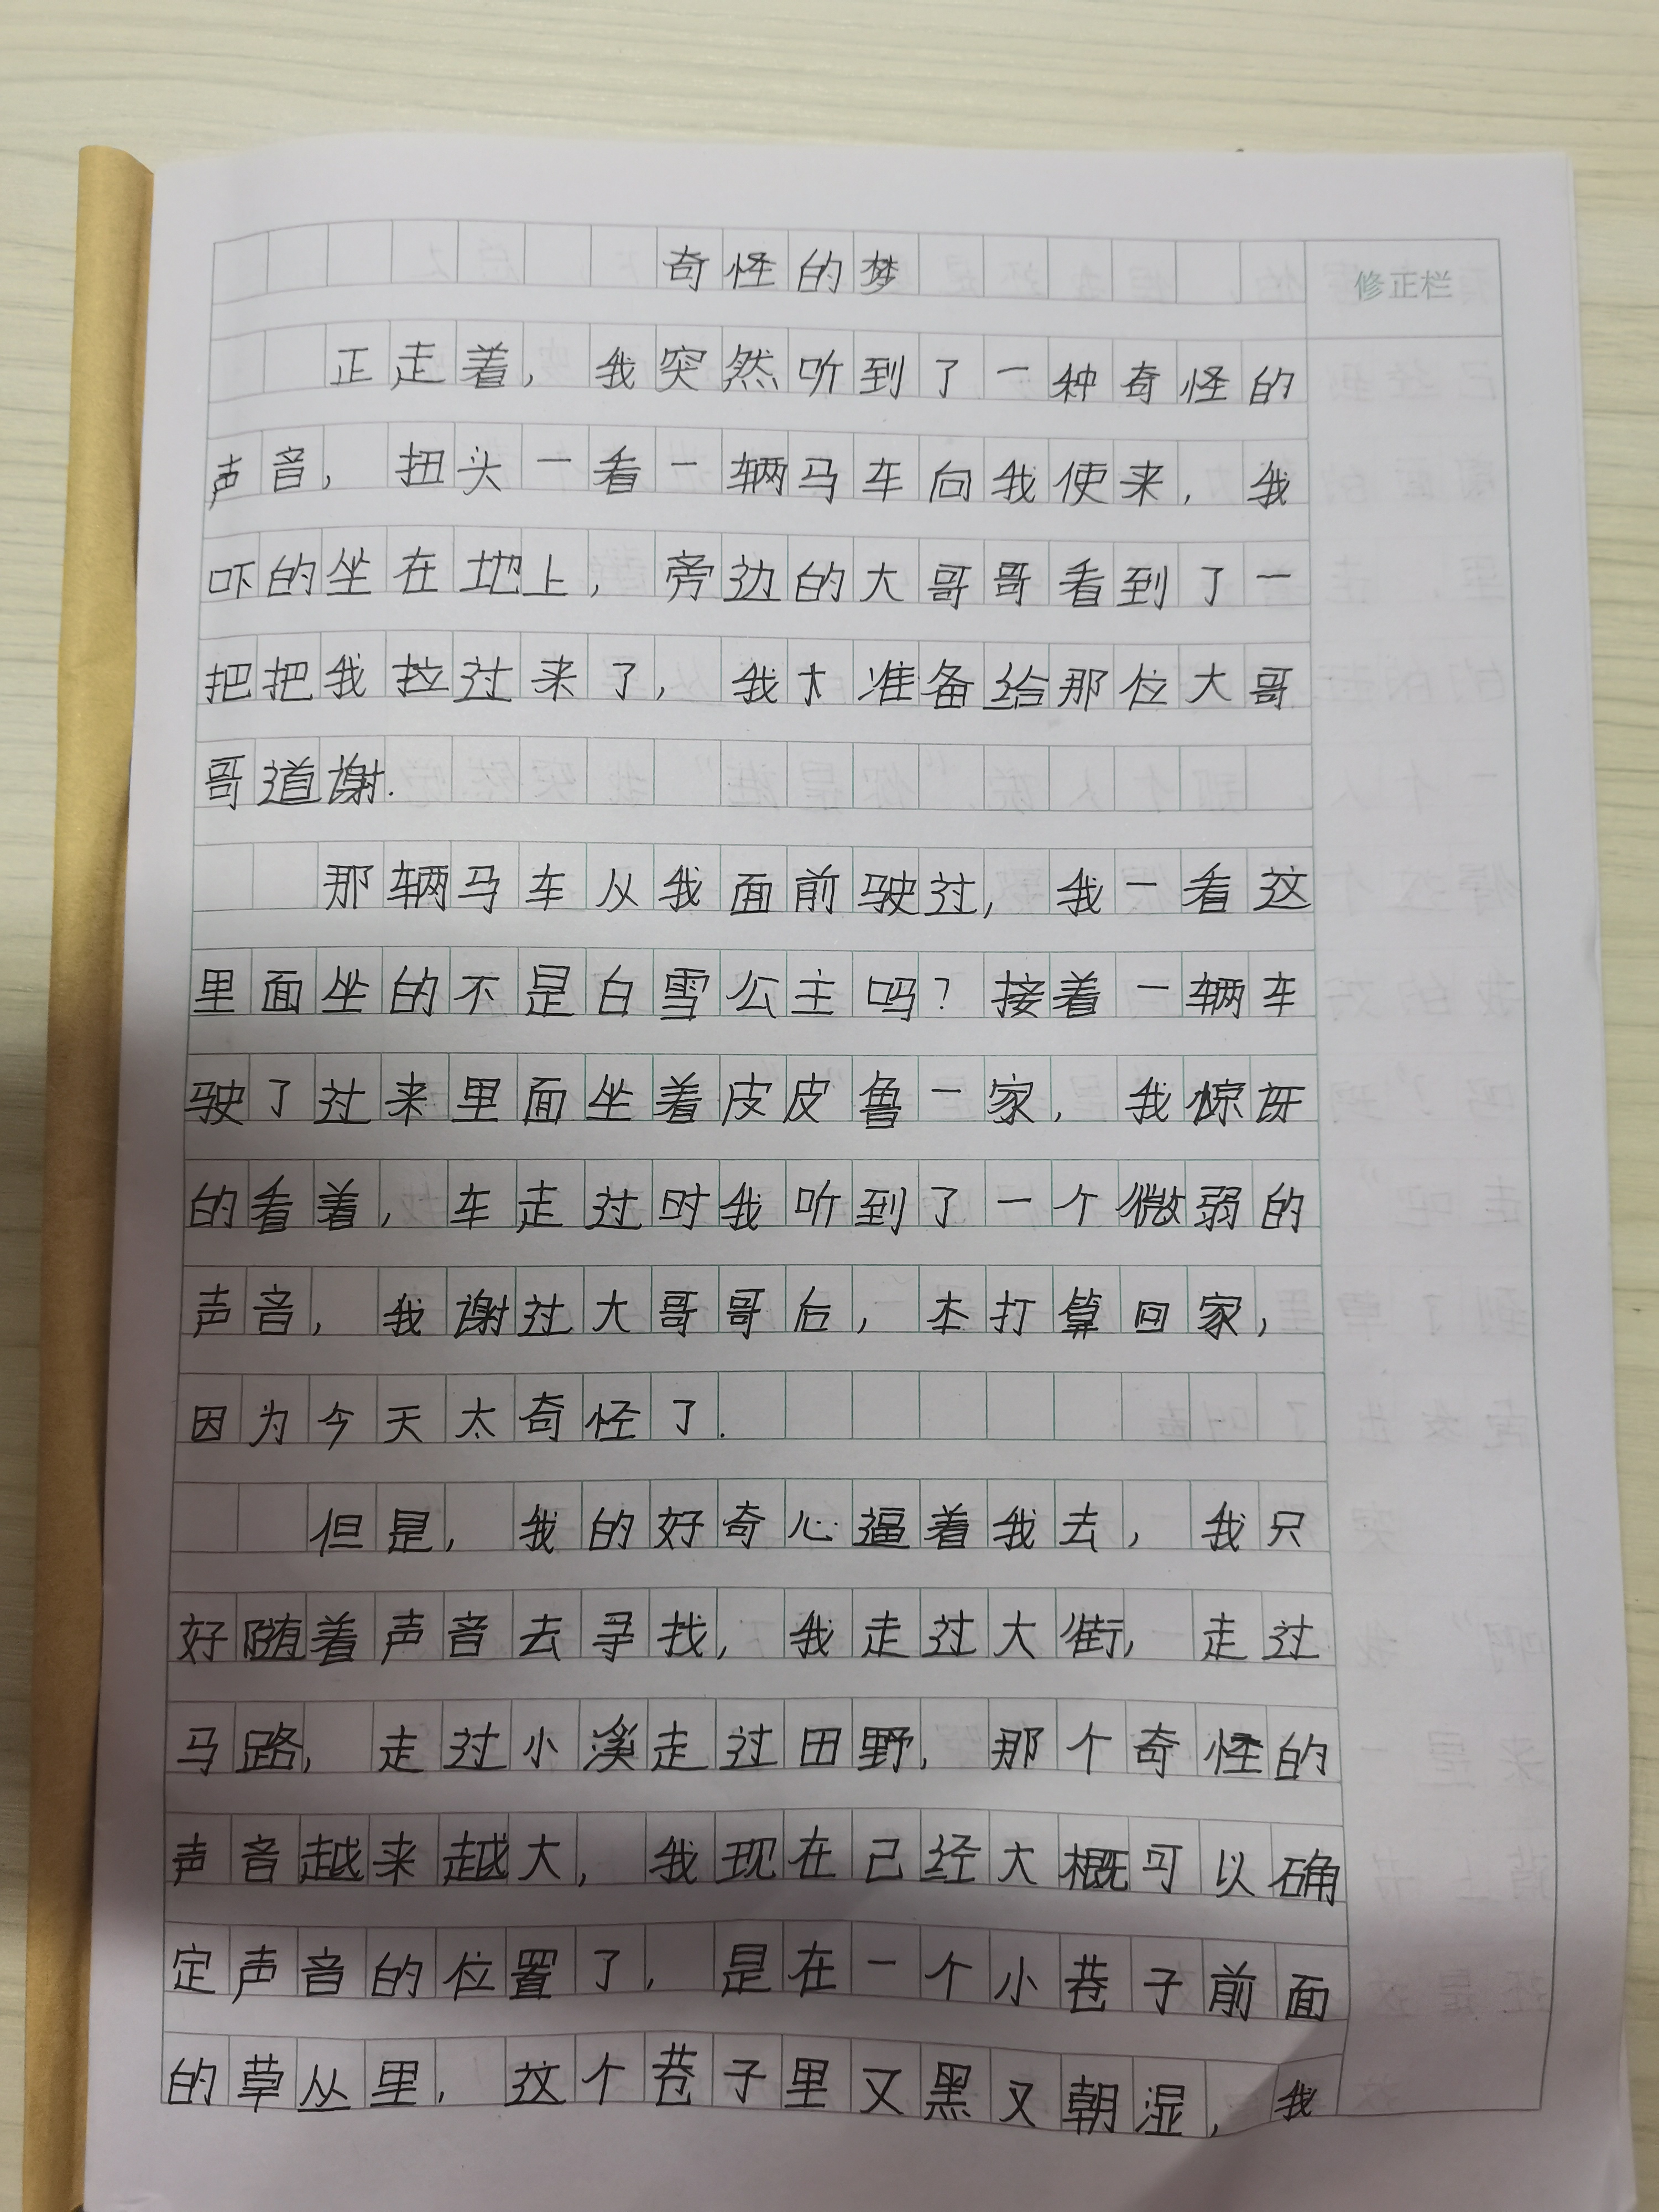 奇怪的梦
修正栏
正走着，我突然听到了一种奇怪的
声音，扭头一看一辆马车向我使来，我
吓的坐在地上，旁边的大哥哥看到了一
把把我拉过来了，我才准备给那位大哥
哥道谢.
那辆马车从我面前驶过，我一看这
里面坐的不是白雪公主吗？接着一辆车
驶了过来里面坐着皮皮鲁一家，我惊讶
的看着，车走过时我听到了一个微弱的
声音，我谢过大哥哥后，本打算回家，
因为今天太奇怪了.
但是，我的好奇心逼着我去，我只
好随着声音去寻找，我走过大街，走过
马路，走过小溪走过田野，那个奇怪的
声音越来越大，我现在己经大概可以确
定声音的位置了，是在一个小巷子前面
的草丛里，这个巷子里又黑又朝湿，我